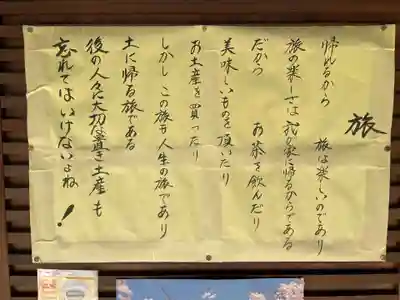 旅
帰れるから 旅は楽しいのであり
旅の楽しさは 我が家に帰るからである
だから お茶を飲んだり
美味しいものを頂いたり
お土産を買ったり
しかし この旅も人生の旅であり
土に帰る旅である
後の人々に大切な置き土産も
忘れてはいけないよね!